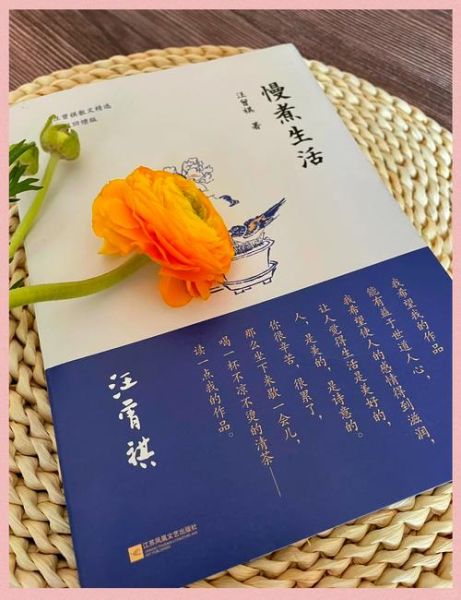 慢煮生活
汪曾祺 著
汪曾祺散文精选
回馈版
我希望我的作品
能有益于世道人心，
我希望使人的感情得到滋润，
让人觉得生活是美好的，
人，是美的，是诗意的。
你很辛苦，很累了，
那么坐下来歇一会儿，
喝一杯不凉不烫的清茶——
读一点我的作品。
汪曾祺
江苏凤凰文艺出版社